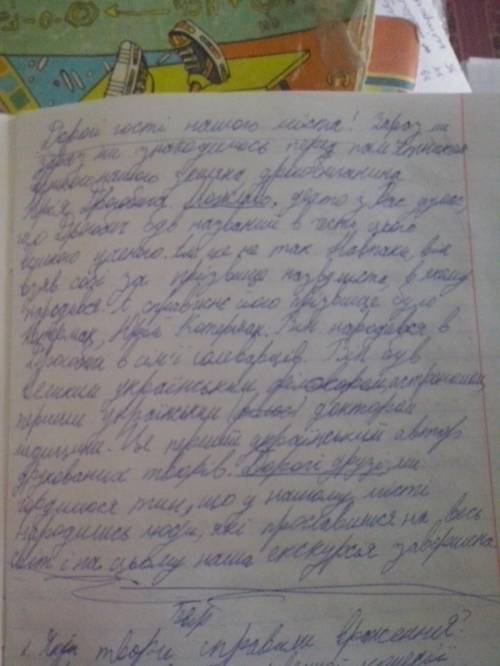 Дорогі гості нашого міста! Зараз ми
зараз ми знаходимось перед пам'ятником
нашого земляка, дрогобичанина
Юрія Дрогобича. Можливо, дехто з Вас думає,
що Дрогобич був названий в честь цього
великого ученого. але це не так. Навпаки, він
взяв собі за прізвище назву міста, в якому
народився. А справжнє його прізвище було
Котермак, Юрій Котермак. Він народився в
Дрогобичі в сім'ї солеварців. Він був
великим українським філософом, астрономом,
першим українським доктором
медицини. Це перший український автор
друкованих творів. Дорогі друзі, ми
гордимося тим, що у нашому місті
народились люди, які прославилися на весь
світ і на цьому наша екскурсія завершена
твори справили враження?